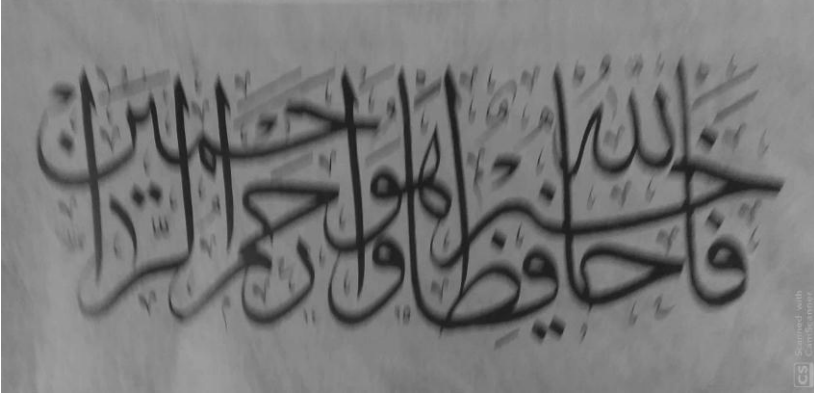 فالله خير حافظا وهو ارحم الراحمين
Scanned with
CamScanner
CS